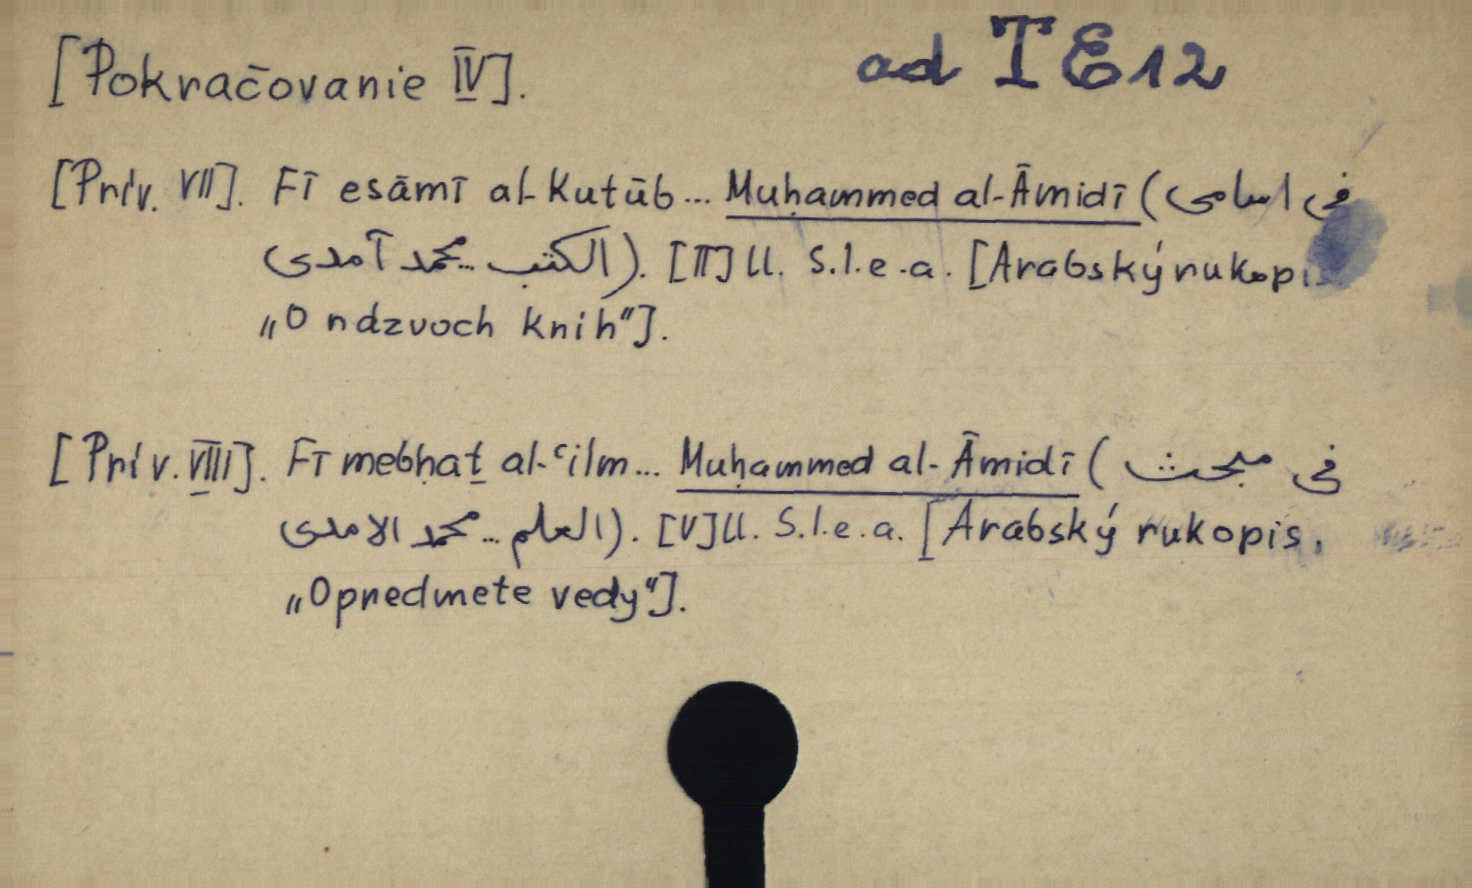 [Pokračovanie IV]. ad TE12
[Prív. VII]. Fī esāmī al-Kutūb... Muḥammed al-Āmidī (فى اسامى
الكتب ... محمد آمدى). [II] ll. S.l.e.a. [Arabský rukopis
„O názvoch kníh"].
[Prív. VIII]. Fī mebḥaṯ al-ʿilm... Muḥammed al-Āmidī (فى مبحث
العلم ... محمد الامدى). [V] ll. S.l.e.a. [Arabský rukopis,
„O predmete vedy"].